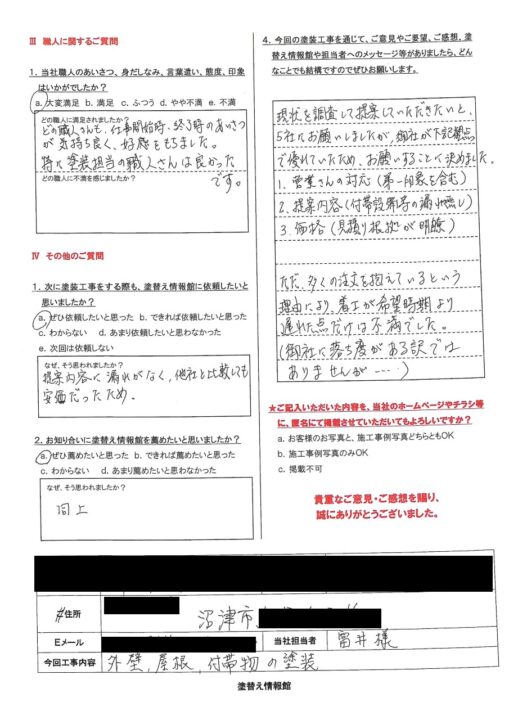 Ⅲ 職人に関するご質問
1. 当社職人のあいさつ、身だしなみ、言葉遣い、態度、印象
はいかがでしたか？
a. 大変満足 b. 満足 c. ふつう d. やや不満 e. 不満
どの職人に満足されましたか？
どの職人さんも、仕事開始時、終了時のあいさつ
が気持ち良く、好感をもちました。
特に塗装担当の職人さんは良かった
です。
どの職人に不満を感じましたか？
Ⅳ その他のご質問
1. 次に塗装工事をする際も、塗替え情報館に依頼したいと
思いましたか？
a. ぜひ依頼したいと思った b. できれば依頼したいと思った
c. わからない d. あまり依頼したいと思わなかった
e. 次回は依頼しない
なぜ、そう思われましたか？
提案内容に漏れがなく、他社と比較しても
安価だったため。
2. お知り合いに塗替え情報館を薦めたいと思いましたか？
a. ぜひ薦めたいと思った b. できれば薦めたいと思った
c. わからない d. あまり薦めたいと思わなかった
なぜ、そう思われましたか？
同上
4. 今回の塗装工事を通じて、ご意見やご要望、ご感想、塗
替え情報館や担当者へのメッセージ等がありましたら、どん
なことでも結構ですのでぜひお願いします。
現状を調査して提案していただきたいと、
5社にお願いしましたが、御社が下記観点
で優れていたため、お願いすることに決めました。
1. 営業さんの対応（第一印象を含む）
2. 提案内容（付帯設備等の漏れ無し）
3. 価格（見積り根拠が明瞭）
ただ、多くの注文を抱えているという
理由により、着工が希望時期より
遅れた点だけは不満でした。
（御社に落ち度がある訳では
ありませんが……）
★ご記入いただいた内容を、当社のホームページやチラシ等
に、匿名にて掲載させていただいてもよろしいですか？
a. お客様のお写真と、施工事例写真どちらともOK
b. 施工事例写真のみOK
c. 掲載不可
貴重なご意見・ご感想を賜り、
誠にありがとうございました。
ご住所
沼津市
Eメール
当社担当者
富井様
今回工事内容
外壁、屋根、付帯物の塗装
塗替え情報館